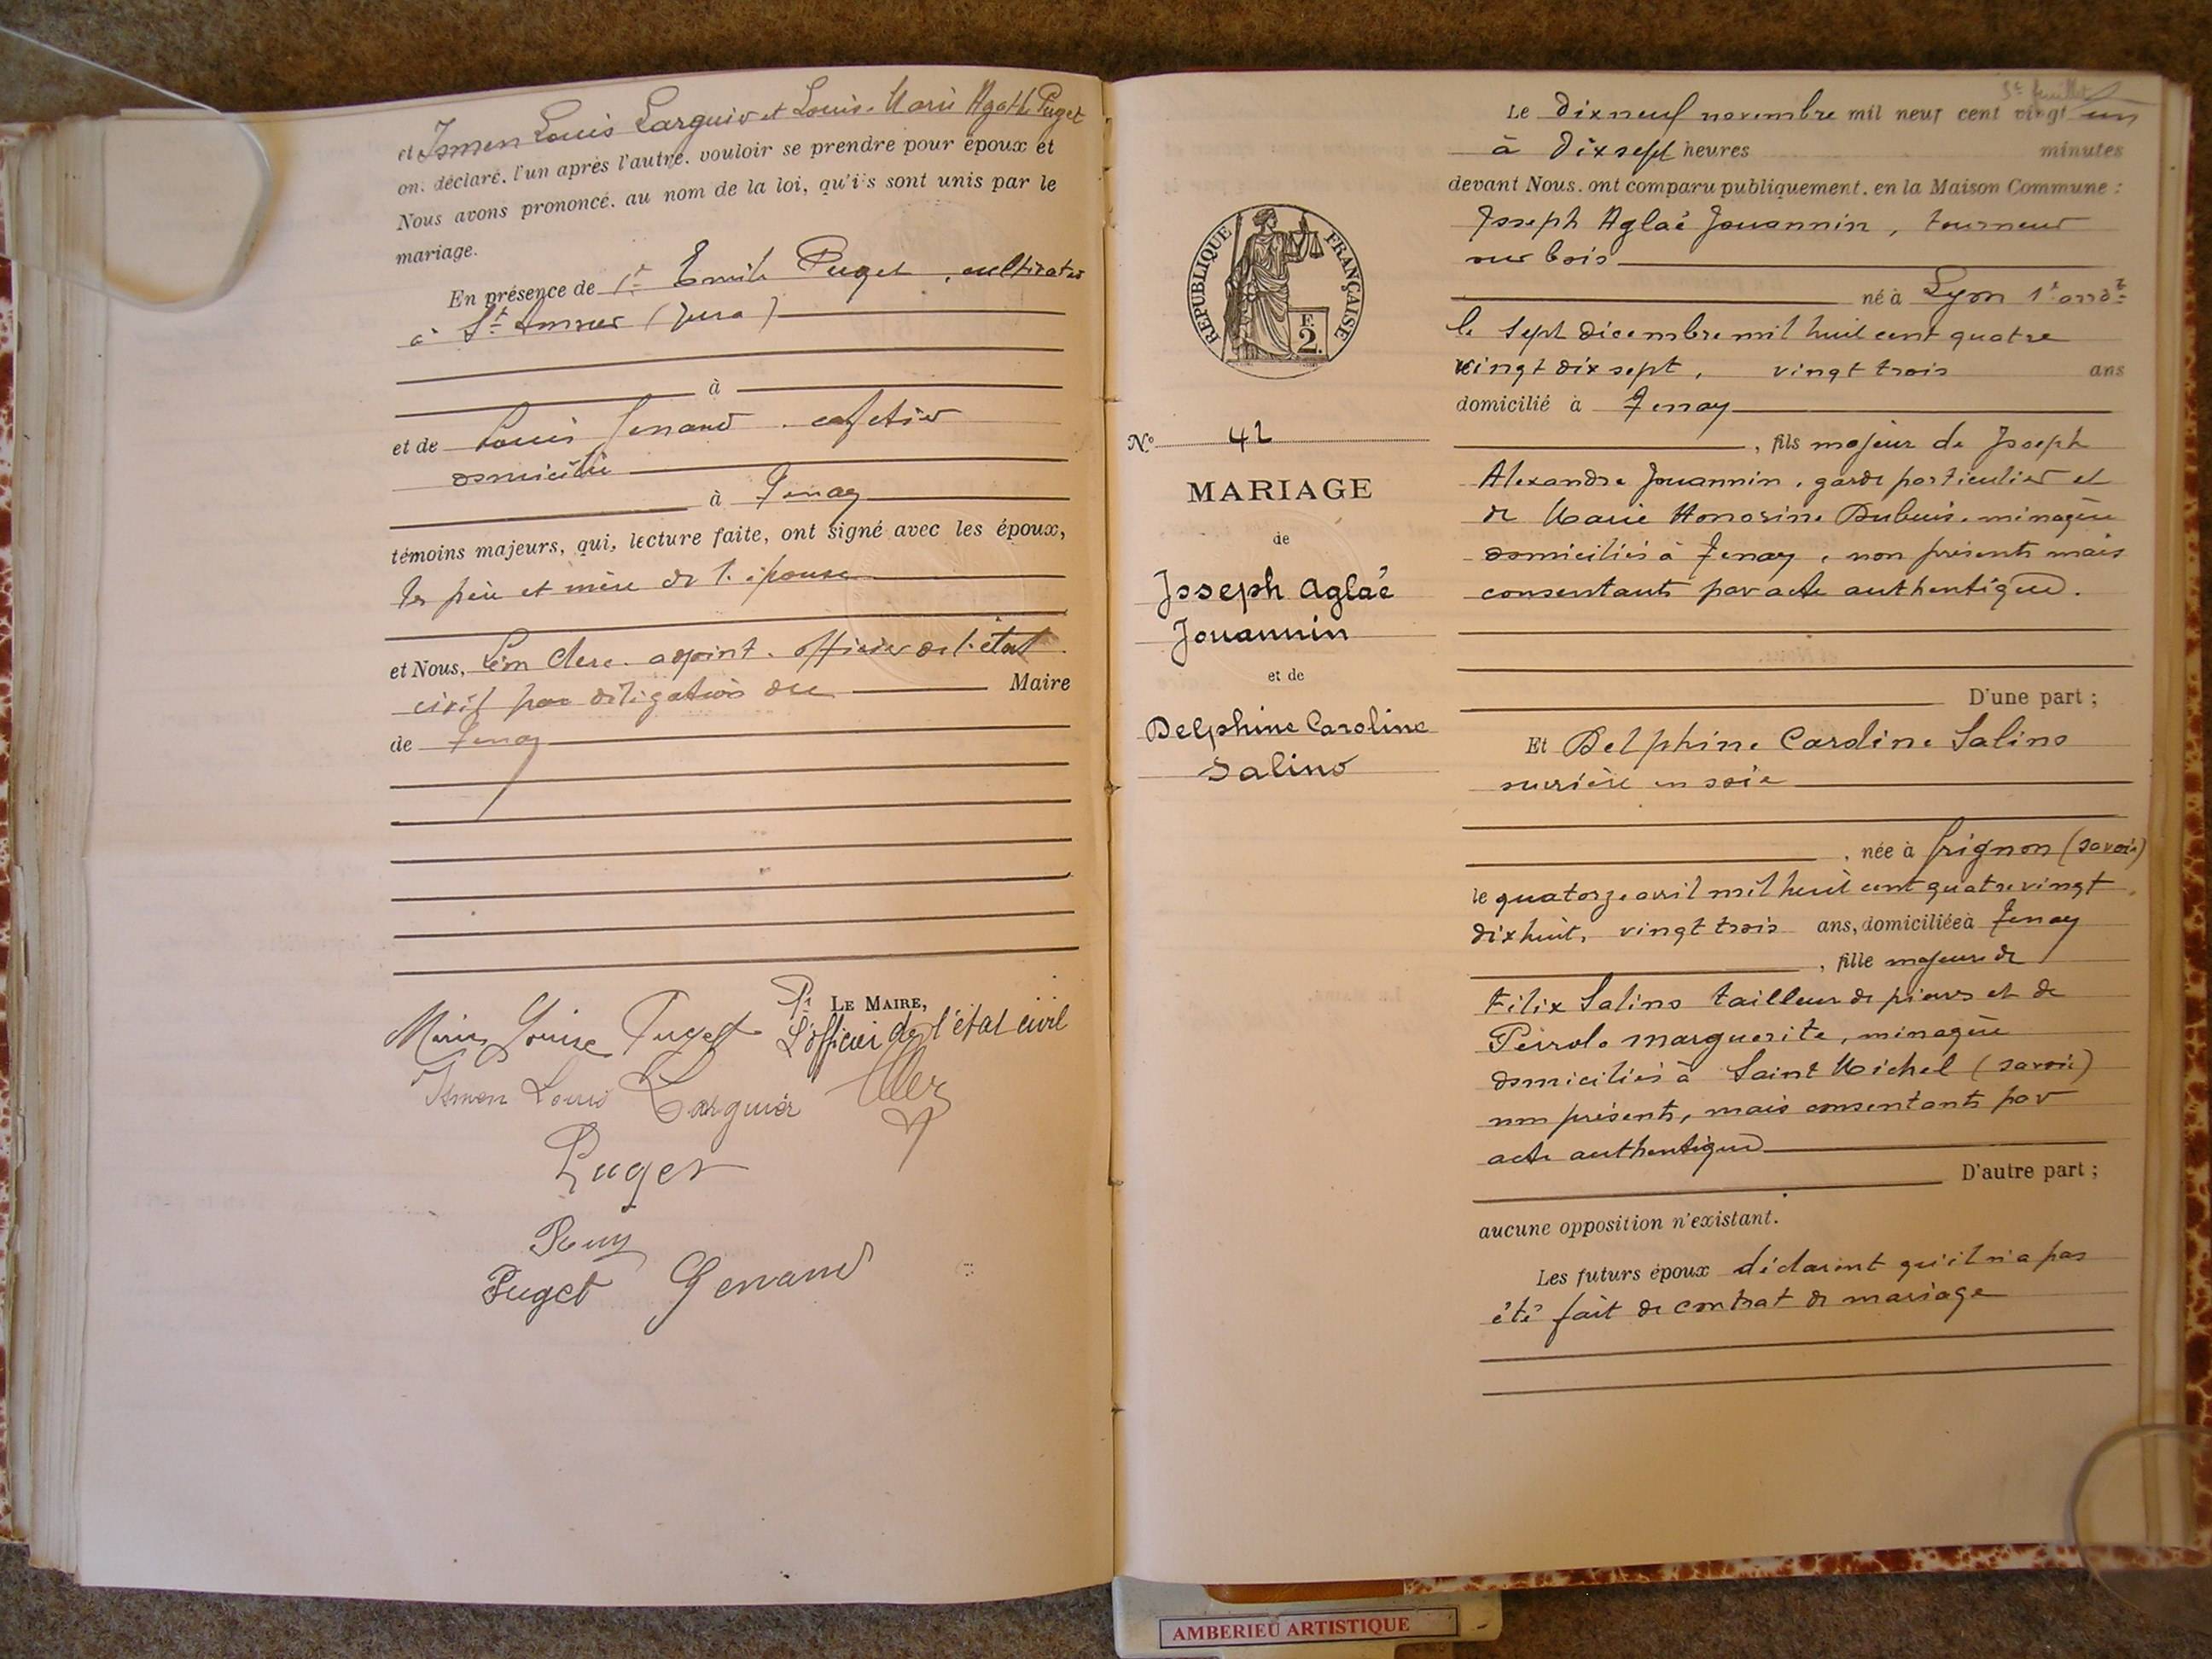 et Ismen Louis Larguier et Louise Marie Agathe Puget
on. déclaré. l'un après l'autre. vouloir se prendre pour époux et
Nous avons prononcé. au nom de la loi, qu'ils sont unis par le
mariage.
En présence de 1º Emile Puget, cultivateur
à St Amour (Jura)
à
et de Louis Genand. cafetier
domicilié
à Tenay
témoins majeurs, qui, lecture faite, ont signé avec les époux,
les père et mère de l'épouse
et Nous, Léon Clerc. adjoint. officier de l'état
civil par délégation du Maire
de Tenay
Pr LE MAIRE,
L'officier de l'état civil
Marie Louise Puget
Ismen Louis Larguier
Puget
Puget Genand
RÉPUBLIQUE FRANÇAISE
F.
2.
No 42
MARIAGE
de
Joseph Aglaé
Jouannin
et de
Delphine Caroline
Salino
5e feuillet
Le dix neuf novembre mil neuf cent vingt un
à dix sept heures minutes
devant Nous. ont comparu publiquement. en la Maison Commune :
Joseph Aglaé Jouannin, tourneur
sur bois
né à Lyon 1r arrdt
le sept décembre mil huit cent quatre
vingt dix sept, vingt trois ans
domicilié à Tenay
, fils majeur de Joseph
Alexandre Jouannin, garde particulier et
de Marie Honorine Dubuis. ménagère
domiciliés à Tenay, non présents mais
consentants par acte authentique.
D'une part ;
Et Delphine Caroline Salino
ouvrière en soie
, née à Grignon (Savoie)
le quatorze avril mil huit cent quatre vingt
dix huit, vingt trois ans, domiciliée à Tenay
, fille majeure de
Félix Salino tailleur de pierres et de
Perrolo Marguerite, ménagère
domiciliés à Saint Michel (Savoie)
non présents, mais consentants par
acte authentique
D'autre part ;
aucune opposition n'existant.
Les futurs époux déclarent qu'il n'a pas
été fait de contrat de mariage
AMBERIEU ARTISTIQUE